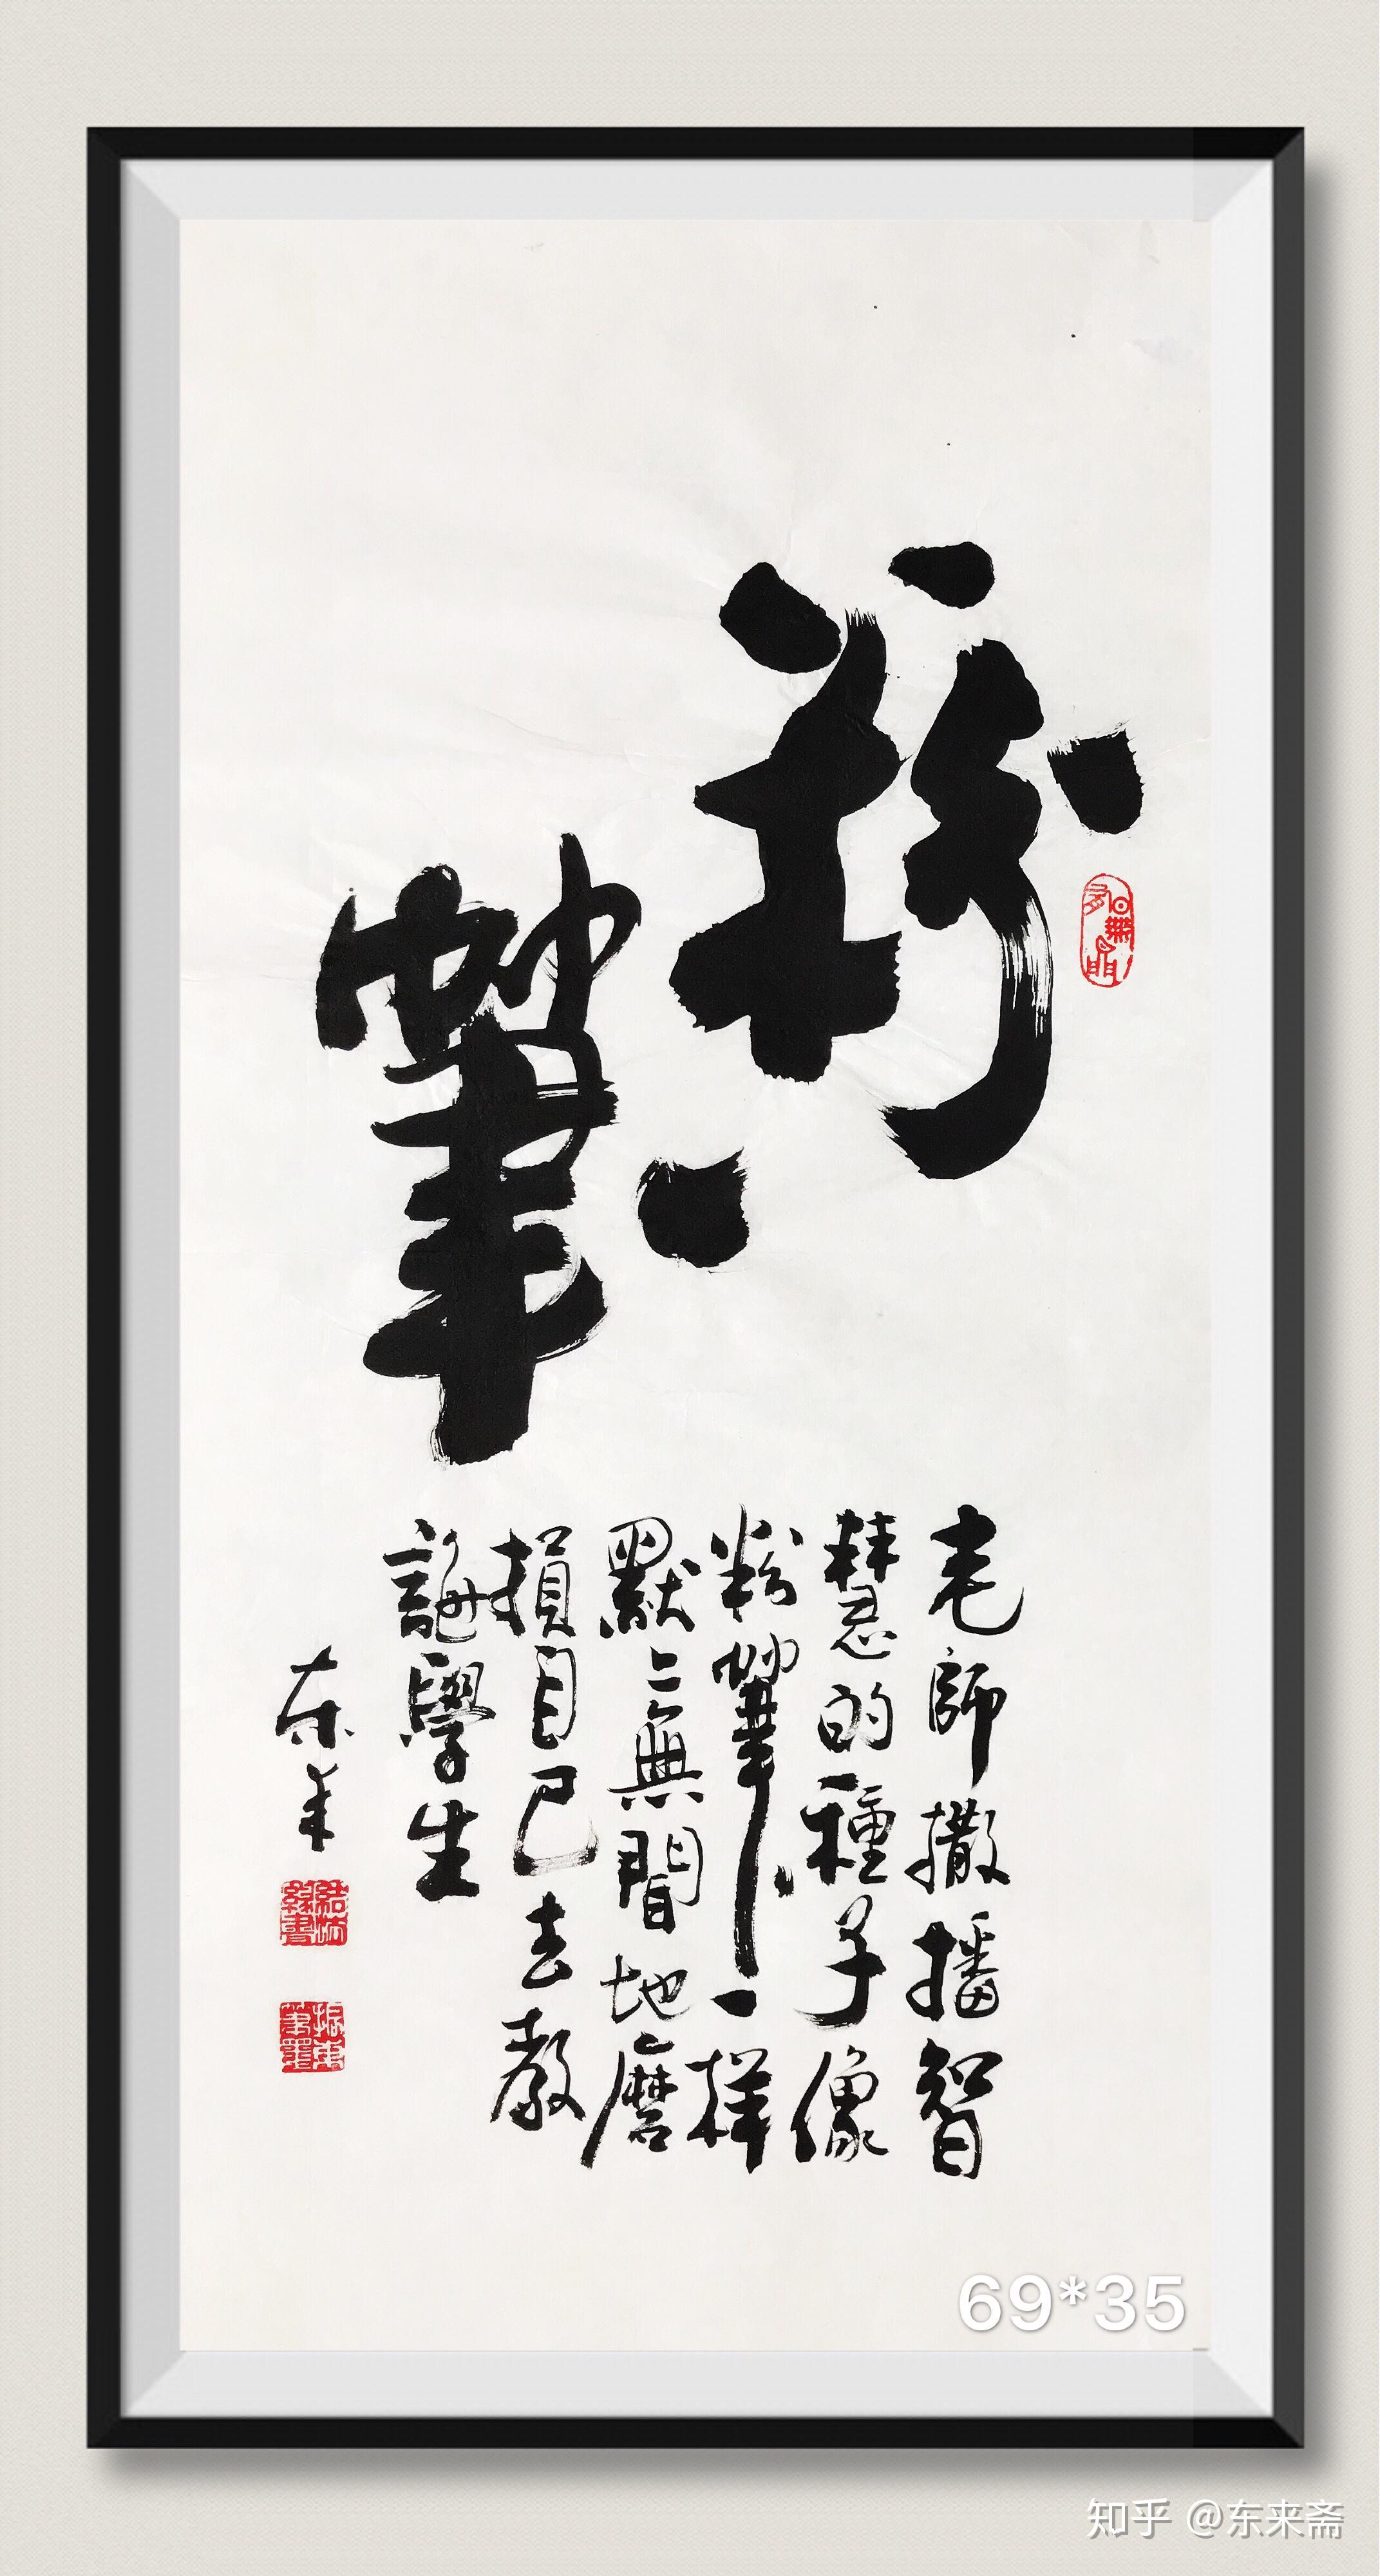 粉筆
老師撒播智
慧的種子像
粉筆一樣
默〻無聞地磨
損自己去教
誨學生
东来
69*35
知乎 @东来斋